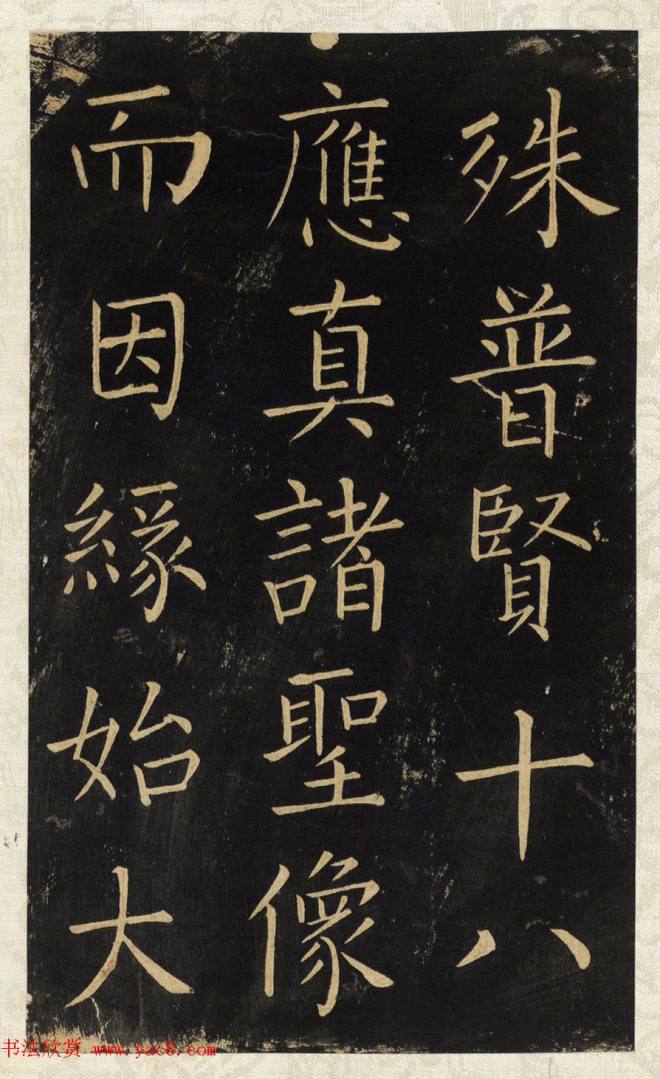 殊普賢十八
應真諸聖像
而因緣始大
书法欣赏 www.yac8.com